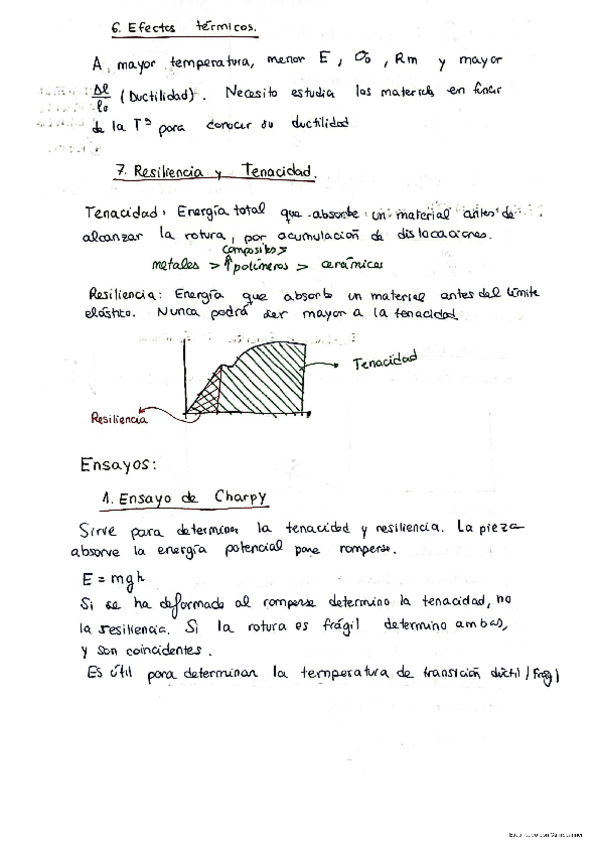 6. Efectos térmicos.
A mayor temperatura, menor E, σo, Rm y mayor
Δl/lo (Ductilidad). Necesito estudia los materiales en funcir
de la Tª para conocer su ductilidad
7. Resiliencia y Tenacidad.
Tenacidad: Energía total que absorbe un material antes de
alcanzar la rotura, por acumulación de dislocaciones.
composites >
metales > ↑ polímeros > cerámicas
Resiliencia: Energía que absorbe un material antes del límite
elástico. Nunca podrá ser mayor a la tenacidad.
Tenacidad
Resiliencia
Ensayos:
1. Ensayo de Charpy
Sirve para determinar la tenacidad y resiliencia. La pieza
absorve la energía potencial para romperse.
E = mgh
Si se ha deformado al romperse determino la tenacidad, no
la resiliencia. Si la rotura es frágil determino ambas,
y son coincidentes.
Es útil para determinar la temperatura de transición dúctil / frágil